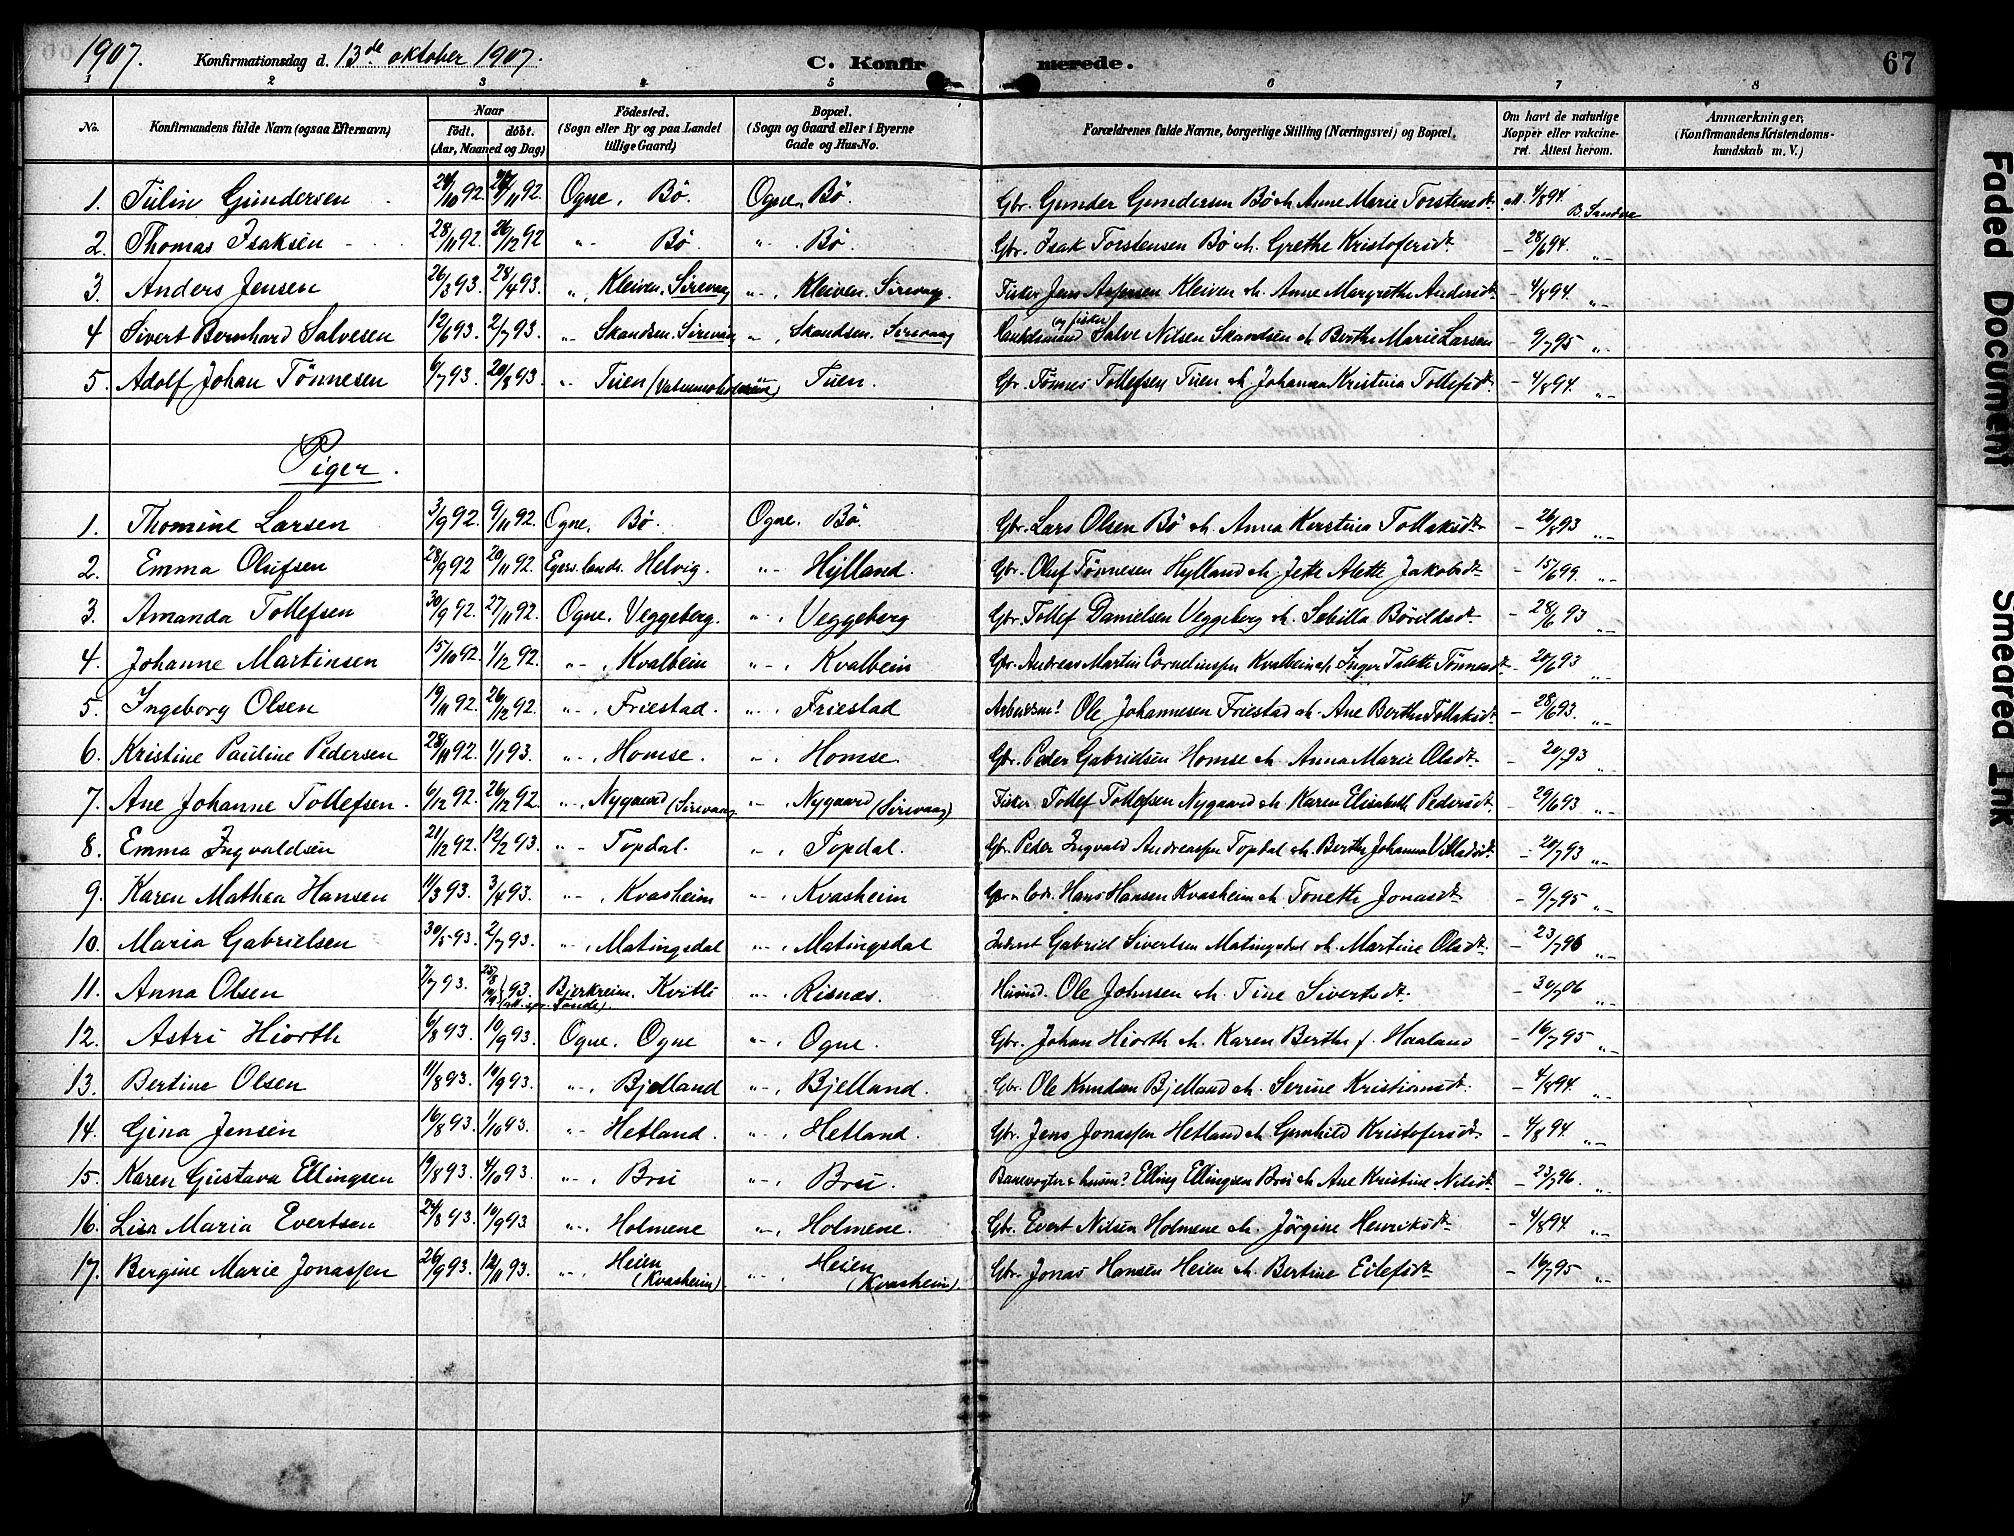 1907. Konfirmationsdag d. 13de oktober 1907. C. Konfirmerede. 67
1 2 3 4 5 6 7 8
No. Konfirmandens fulde Navn (ogsaa Efternavn) Naar født. døbt. (Aar, Maaned og Dag) Födested. (Sogn eller By og paa Landet tillige Gaard) Bopæl. (Sogn og Gaard eller i Byerne Gade og Hus-No. Forældrenes fulde Navne, borgerlige Stilling (Næringsvei) og Bopæl. Om havt de naturlige Kopper eller vakcineret. Attest herom. Anmærkninger, (Konfirmandens Kristendomskundskab m. V.)
1. Tilin Gundersen 24/10 92 27/11 92 Ogne, Bö. Ogne, Bö. Gbr. Gunder Gundersen Bö & h. Anne Marie Torstensdt. att. 4/8 94. B. Sandve
2. Thomas Isaksen 28/11 92. 26/12 92 "- Bö. "- Bö. Gbr. Isak Torstensen Bö & h. Grethe Kristofersdt. - 28/6 94. "-
3. Anders Jensen 26/3 93. 28/4 93. ", Kleiven. Sirevaag "-, Kleiven. Sirevaag. Fisker Jens Aspersen Kleiven & h. Anne Margrethe Andersdt. - 4/8 94. "-
4 Sivert Bernhard Salvesen 12/6 93. 2/7 93. "- Skandsen. Sirevaag "-, Skandsen. Sirevaag og fisker Salve Nilsen Skandsen & h. Berthe Marie Larsen - 9/7 95 "-
5. Adolf Johan Tönnesen 6/7 93. 20/8 93. "- Tuen "-, Tuen. Gbr. Tönnes Tollefsen Tuen & h. Johanna Kristina Tollefsdt. - 4/8 94. "-
Piger.
1. Thomine Larsen 3/9 92. 9/11 92. Ogne, Bö. Ogne, Bö. Gbr. Lars Olsen Bö & h. Anna Kirstina Tollaksdt. - 26/8 93 "-
2. Emma Olufsen 28/9 92 20/11 92. Egers. lands. Helvig. "- Hylland. Gbr. Oluf Tönnesen Hylland & h. Jette Alette Jakobsdt. - 15/6 99. "-
3. Amanda Tollefsen 30/9 92. 27/11 92. Ogne, Veggeberg. "-, Veggeberg Gbr. Tollef Danielsen Veggeberg & h. Sebilla Bövildsdt. - 28/6 93 "-
4. Johanne Martinsen 15/10 92. 1/12 92. "-, Kvalbein "-, Kvalbein Gbr. Andreas Martin Corneliussen Kvalbein & h. Inger Talette Tönnesdt. - 20/6 93 "-
5. Ingeborg Olsen 19/11 92. 26/12 92. "-, Friestad. "-, Friestad Arbeidsm. Ole Johannesen Friestad & h. Ane Berthe Tollaksdt. - 28/6 93. "-
6. Kristine Pauline Pedersen 28/11 92. 1/1 93. "-, Homse. "-, Homse. Gbr. Peder Gabrielsen Homse & h. Anna Marie Olsdt. - 20/7 93 "-
7. Ane Johanne Tollefsen. 6/12 92. 26/12 92. "-, Nygaard (Sirevaag "- Nygaard (Sirevaag) Fisker Tollef Tollefsen Nygaard & h. Karen Elisabeth Pedersdt. - 29/6 93. "-
8. Emma Ingvaldsen 21/12 92. 12/2 93. "- Topdal. "-, Topdal. Gbr. Peder Ingvald Andreassen Topdal & h. Berthe Johanna Villadsdt. - 20/7 93 "-
9. Karen Mathea Hansen 11/3 93. 3/4 93. "-, Kvasheim "-, Kvasheim Hans Hansen Kvasheim & h. Tonette Jonasdt. - 9/7 95 "-
10. Maria Gabrielsen 30/5 93. 2/7 93. "-, Matingsdal "-, Matingsdal Inderst Gabriel Sivertsen Matingsdal & h. Martine Olsdt. - 23/7 96 "-
11. Anna Olsen 7/7 93. 93. Bjerkreim. Kvitli "-, Risnes. Husmd. Ole Johnsen & h. Tine Sivertsdt. - 30/7 06 "-
12. Astri Hiorth 6/8 93. 10/9 93. Ogne, Ogne "-, Ogne. Gbr. Johan Hiorth & h. Karen Berthe f. Haaland - 16/7 95 "-
13. Bertine Olsen 11/8 93. 10/9 93. "-, Bjelland "-, Bjelland. Gbr. Ole Knudsen Bjelland & h. Serine Kristiansdt. - 4/8 94. "-
14. Gina Jensen 16/8 93. 1/10 93. "- Hetland. "-, Hetland. Gbr. Jens Jonassen Hetland & h. Gunhild Kristofersdt. - 4/8 94. "-
15. Karen Gustava Ellingsen 19/8 93. 4/10 93. "-, Bru "-, Bru. Banevogter & husm. Elling Ellingsen Bru & h. Ane Kristine Nilsdt. - 23/7 96. "-
16. Lisa Maria Evertsen 24/8 93. 10/9 93. "-, Holmene "-, Holmene. Gbr. Evert Nilsen Holmene & h. Jörgine Henriksdt. - 4/8 94. "-
17. Bergine Marie Jonassen 26/9 93. 12/11 93. "-, Heien (Kvasheim) "-, Heien (Kvasheim). Gbr. Jonas Hansen Heien & h. Bertine Eilefsdt. - 16/7 95 "-
Faded Document
Smeared Ink